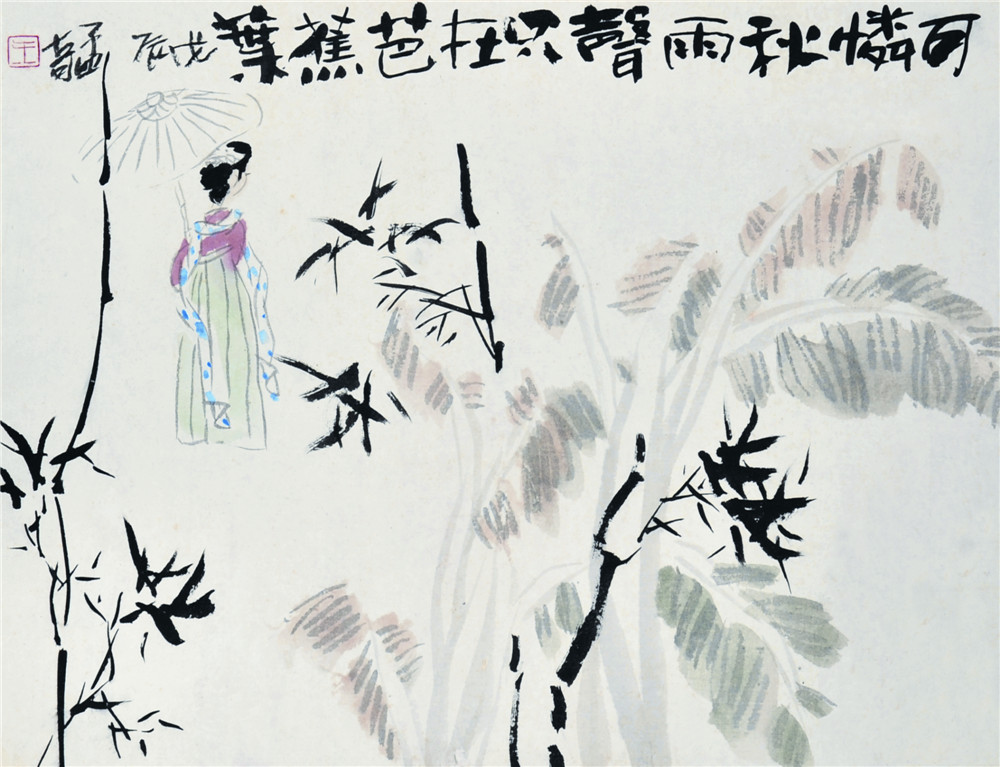 可憐秋雨聲只在芭蕉葉 戊辰 孟奇
王